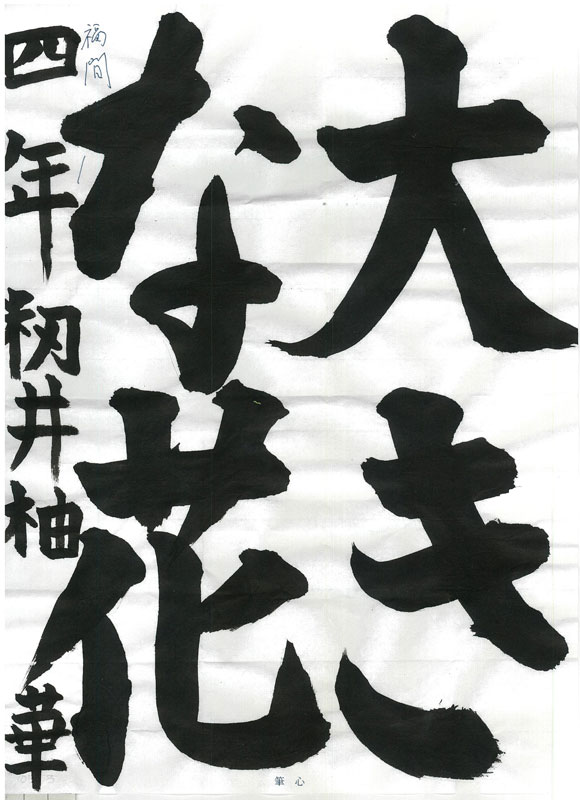 大き
な花
四年 籾井柚華
福間
筆心